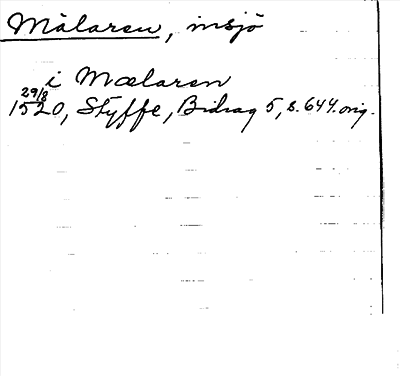 Mälaren, insjö
i Mælaren
29/8 1520, Styffe, Bidrag 5, s. 644. orig.